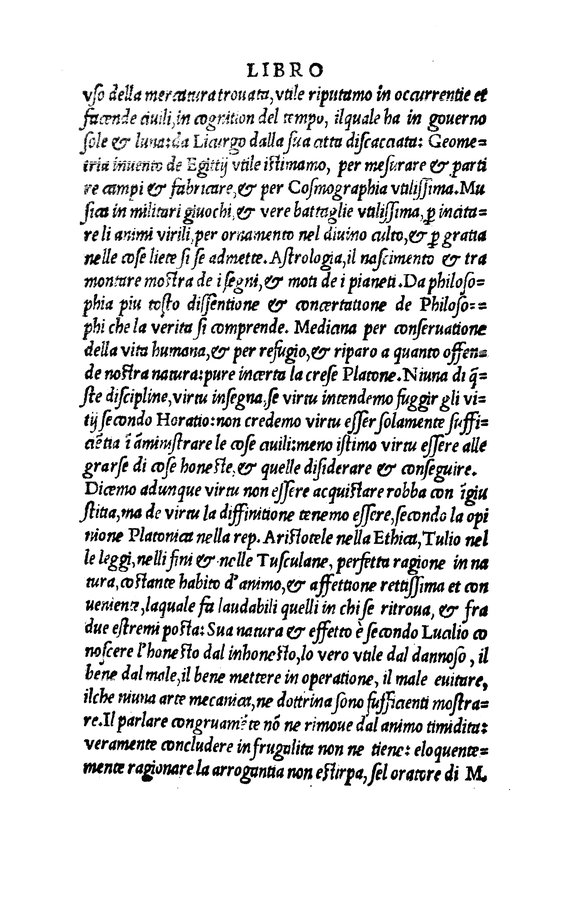 LIBRO
vſo della mercatura trouata, vtile riputamo in occurrentie et
facende ciuili, in cognition del tempo, ilquale ha in gouerno
ſole & luna: da Licurgo dalla ſua citta diſcacciata: Geome=
tria inuento de Egittij vtile iſtimamo, per meſurare & parti
re campi & fabricare, & per Coſmographia vtiliſſima. Mu
ſica in militari giuochi, & vere battaglie vtiliſſima, ꝑ incita=
re li animi virili, per ornamento nel diuino culto, & ꝑ gratia
nelle coſe liete ſi ſe admette. Aſtrologia, il naſcimento & tra
montare moſtra de i ſegni, & moti de i pianeti. Da philoſo=
phia piu toſto diſſentione & concertatione de Philoſo==
phi che la verita ſi comprende. Medicina per conſeruatione
della vita humana, & per refugio, & riparo a quanto offen=
de noſtra natura: pure incerta la creſe Platone. Niuna di q̃=
ſte diſcipline, virtu inſegna, ſe virtu intendemo fuggir gli vi=
tij ſecondo Horatio: non credemo virtu eſſer ſolamente ſuffi=
ciẽtia ĩ ãminiſtrare le coſe ciuili: meno iſtimo virtu eſſere alle
grarſe di coſe honeſte, & quelle diſiderare & conſeguire.
Dicemo adunque virtu non eſſere acquiſtare robba con ĩgiu
ſtitia, ma de virtu la diffinitione tenemo eſſere, ſecondo la opi
nione Platonica nella rep. Ariſtotele nella Ethica, Tulio nel
le leggi, nelli fini & nelle Tuſculane, perfetta ragione in na
tura, coſtante habito d'animo, & affettione rettiſſima et con
ueniente, laquale fa laudabili quelli in chi ſe ritroua, & fra
due eſtremi poſta: Sua natura & effetto è ſecondo Lucilio co
noſcere l'honeſto dal inhoneſto, lo vero vtile dal dannoſo, il
bene dal male, il bene mettere in operatione, il male euitare,
ilche niuna arte mecanica, ne dottrina ſono ſufficienti moſtra=
re. Il parlare congruamẽte nõ ne rimoue dal animo timidita:
veramente concludere in frugalita non ne tiene: eloquente=
mente ragionare la arrogantia non eſtirpa, ſel oratore di M.